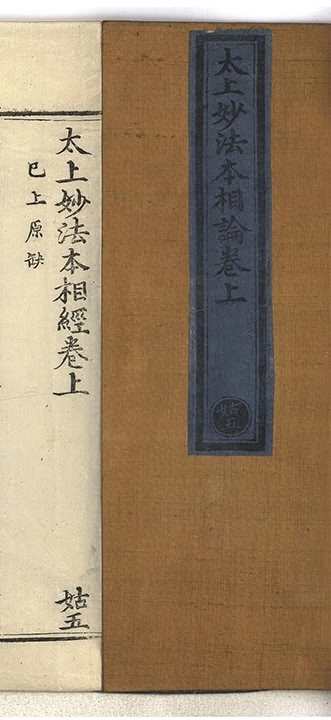 太上妙法本相論卷上
姑五
太上妙法本相經卷上
姑五
已上原缺